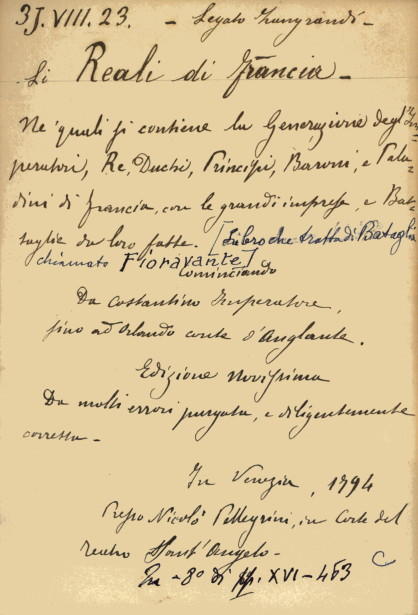 3J.VIII.23. - Legato Zangrandi -
Li Reali di Francia -
Ne' quali si contiene la Generazione degl' Im-
peratori, Re, Duchi, Principi, Baroni, e Pala-
dini di Francia, con le grandi imprese, e Bat-
taglie da loro fatte. [Libro che tratta di Bataglia
chiamato Fioravante]
Cominciando
Da Costantino Imperatore,
sino ad Orlando conte d'Anglante.
Edizione novissima
Da molti errori purgata, e diligentemente
corretta -
In Venezia, 1794
Presso Nicolò Pellegrini, in Corte del
Teatro Sant' Angelo -
In - 8º di pp. XVI - 463 C